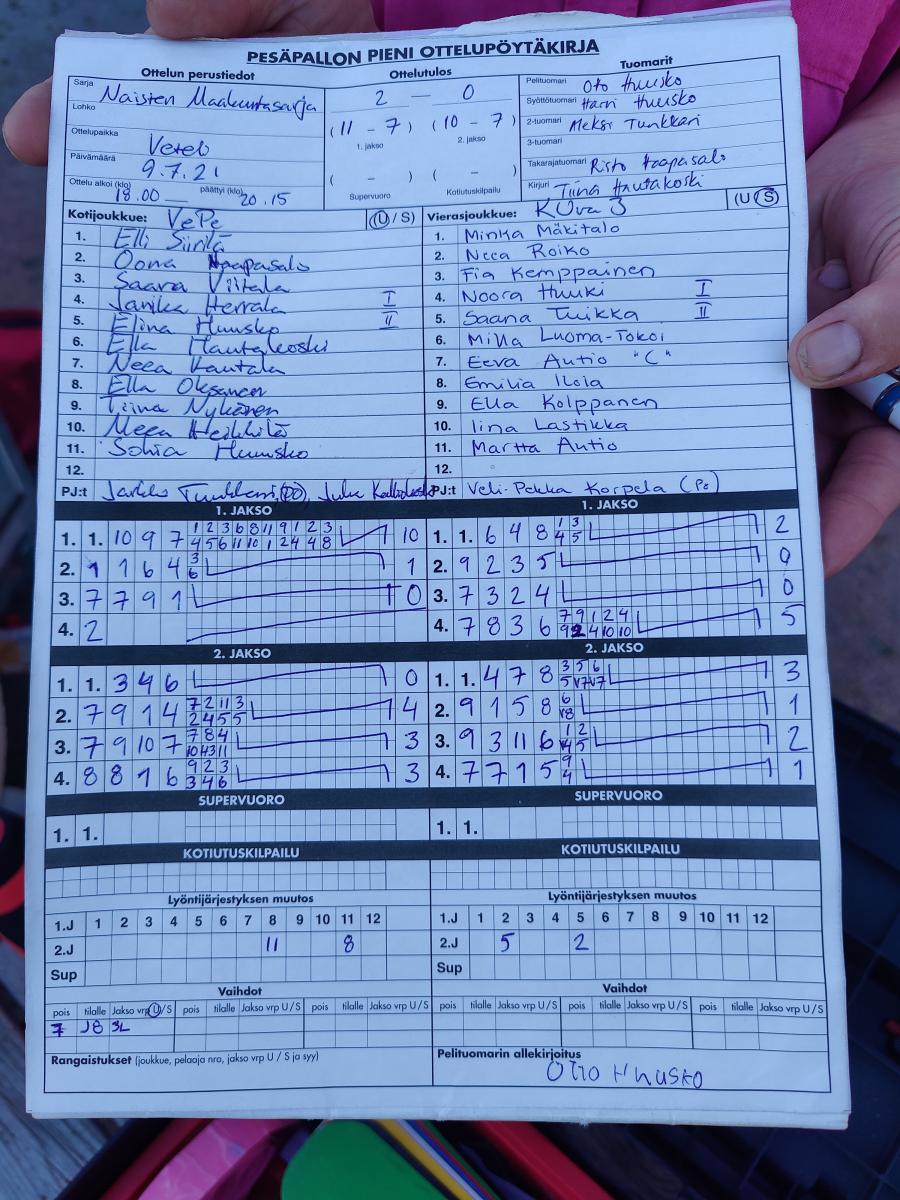 PESÄPALLON PIENI OTTELUPÖYTÄKIRJA
Ottelun perustiedot
Sarja Naisten Maakuntasarja
Lohko
Ottelupaikka Veteli
Päivämäärä 9.7.21
Ottelu alkoi (klo) 18.00 päättyi (klo) 20.15
Ottelutulos
2 — 0
(11 - 7) (10 - 7)
1. jakso 2. jakso
( - ) ( - )
Supervuoro Kotiutuskilpailu
Tuomarit
Pelituomari Oto Huusko
Syöttötuomari Harri Huusko
2-tuomari Meksi Tunkkari
3-tuomari
Takarajatuomari Risto Haapasalo
Kirjuri Tiina Hautakoski
Kotijoukkue: VePe (U / S)
1. Elli Siirilä
2. Oona Haapasalo
3. Saara Viitala
4. Janika Herrala I
5. Elina Huusko II
6. Ella Hautakoski
7. Neea Kautala
8. Ella Oksanen
9. Tiina Nykänen
10. Meea Heikkilä
11. Sohia Huusko
12.
PJ:t Jarkko Tunkkari, (PO), Juha
Vierasjoukkue: KUva 3 (U S)
1. Minka Mäkitalo
2. Neea Roiko
3. Fia Kemppainen
4. Noora Huuki I
5. Saana Tuikka II
6. Milla Luoma-Tokoi
7. Eeva Autio "C"
8. Emilia Iloja
9. Ella Kolppanen
10. Iina Lastikka
11. Martta Autio
12.
PJ:t Veli-Pekka Korpela (Po)
1. JAKSO
1. 1. 10 9 7 1 2 3 6 8 11 9 1 2 3 10
4 5 6 11 10 1 2 4 4 8
2. 1 1 6 4 3 1
6
3. 7 7 9 1 0
4. 2
1. JAKSO
1. 1. 6 4 8 1 3 2
4 5
2. 9 2 3 5 0
3. 7 3 2 4 0
4. 7 8 3 6 7 9 1 2 4 5
9 2 4 10 10
2. JAKSO
1. 1. 3 4 6 0
2. 7 9 1 4 7 2 11 3 4
2 4 5 5
3. 7 9 10 7 7 8 4 3
10 4 3 11
4. 8 8 1 6 9 2 3 3
3 4 6
2. JAKSO
1. 1. 4 7 8 3 5 6 3
5 v7 v7
2. 9 1 5 8 6 1
v8
3. 9 3 11 6 1 2 2
v4 5
4. 7 7 1 5 9 1
4
SUPERVUORO
1. 1.
SUPERVUORO
1. 1.
KOTIUTUSKILPAILU
KOTIUTUSKILPAILU
Lyöntijärjestyksen muutos
1.J 1 2 3 4 5 6 7 8 9 10 11 12
2.J 11 8
Sup
Lyöntijärjestyksen muutos
1.J 1 2 3 4 5 6 7 8 9 10 11 12
2.J 5 2
Sup
Vaihdot
pois tilalle Jakso vrp U/S pois tilalle Jakso vrp U / S pois tilalle Jakso vrp U / S
7 J8 3L
Vaihdot
pois tilalle Jakso vrp U / S pois tilalle Jakso vrp U / S pois tilalle Jakso vrp U / S
Rangaistukset (joukkue, pelaaja nro, jakso vrp U / S ja syy)
Pelituomarin allekirjoitus
Otto Huusko